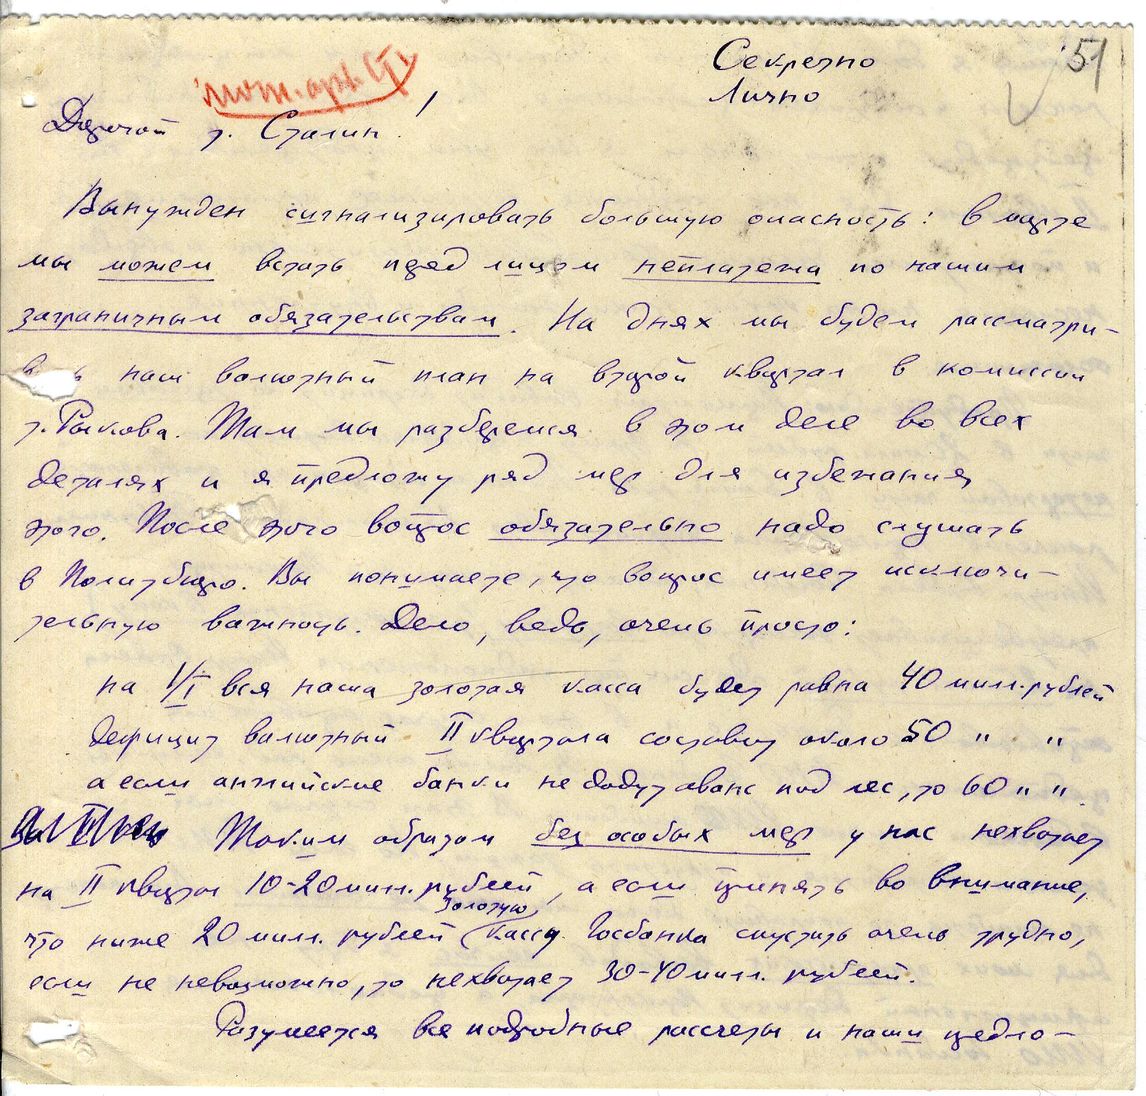 Секретно
51
Лично
Дорогой т. Сталин!
Вынужден сигнализировать большую опасность: в марте
мы можем встать перед лицом неплатежа по нашим
заграничным обязательствам. На днях мы будем рассматри-
в ь наш валютный план на второй квартал в комиссии
т. Рыкова. Там мы разберемся в этом деле во всех
деталях и я предложу ряд мер для избежания
этого. После этого вопрос обязательно надо слушать
в Политбюро. Вы понимаете, что вопрос имеет исключи-
тельную важность. Дело, ведь, очень просто:
на 1/I вся наша золотая касса будет равна 40 милл. рублей
дефицит валютный II квартала составит около 50 " "
а если английские банки не дадут аванс под лес, то 60 " ".
Таким образом без особых мер у нас нехватает
на II квартал 10-20 милл. рублей, а если принять во внимание,
что ниже 20 милл. рублей золотую кассу Госбанка спустить очень трудно,
если не невозможно, то нехватает 30-40 милл. рублей.
Разумеется все подробные рассчеты и наши предло-